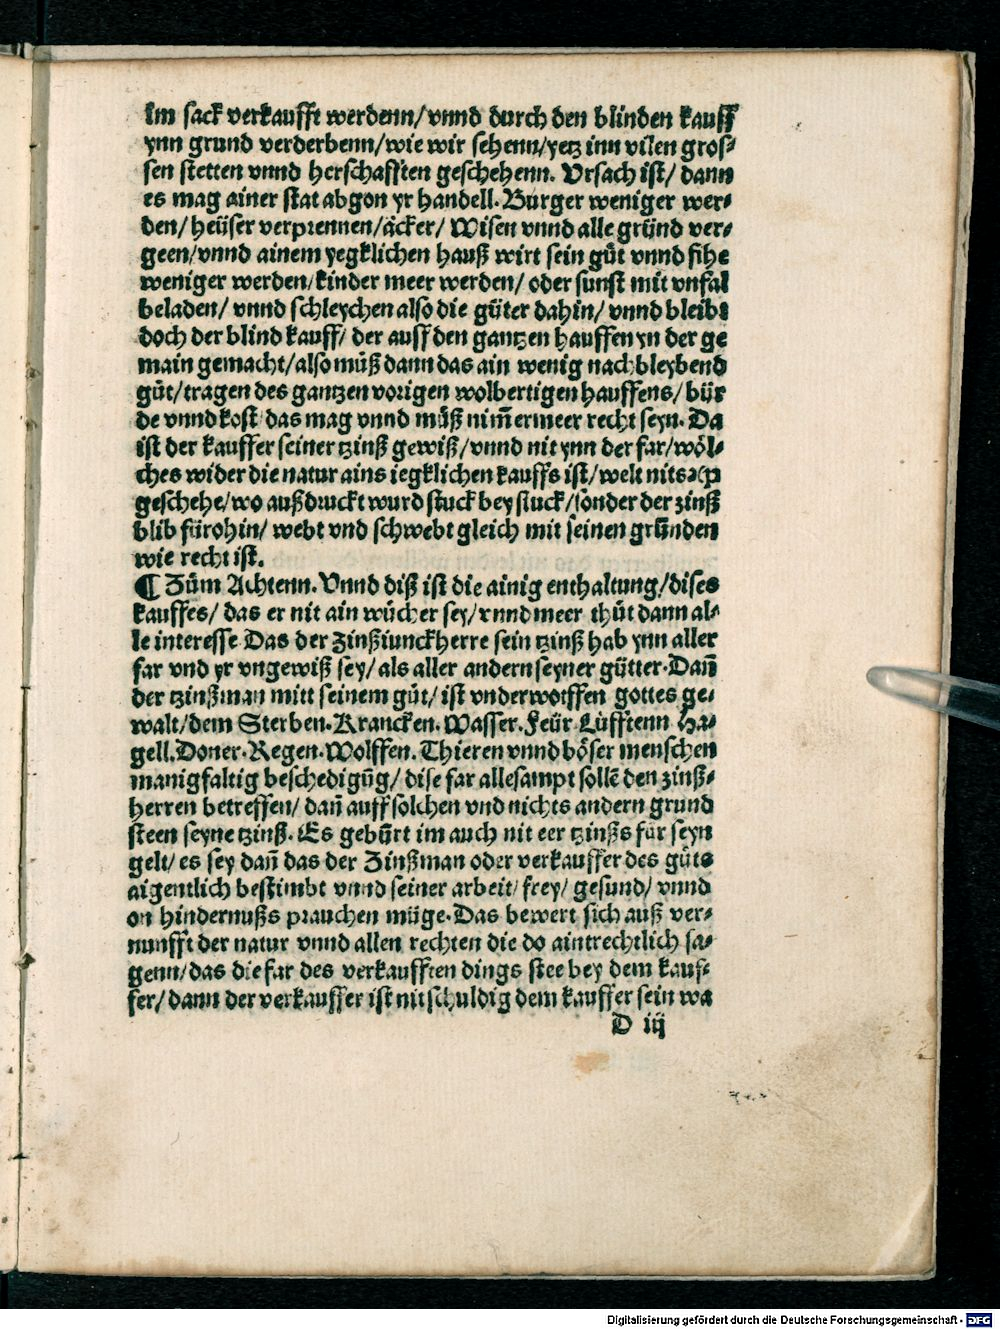 Im sack verkaufft werdenn/ vnnd durch den blinden kauff
ynn grund verderbenn/ wie wir sehenn/ yetz inn vilen gros⸗
sen stetten vnnd herschafften geschehenn. Vrsach ist/ dann
es mag ainer stat abgon yr handell. Burger weniger wer⸗
den/ heüser verprennen/ äcker/ Wisen vnnd alle gründ ver⸗
geen/ vnnd ainem yegklichen hauß wirt sein gůt vnnd fihe
weniger werden/ kinder meer werden/ oder sunst mit vnfal
beladen/ vnnd schleychen also die güter dahin/ vnnd bleibt
doch der blind kauff/ der auff den gantzen hauffen yn der ge
main gemacht/ also můß dann das ain wenig nachbleybend
gůt/ tragen des gantzen vorigen wolbertigen hauffens/ bür
de vnnd kost das mag vnnd můß nim̄ermeer recht seyn. Da
ist der kauffer seiner tzinß gewiß/ vnnd nit ynn der far/ wöl⸗
ches wider die natur ains iegklichen kauffs ist/ welt nits
geschehe/ wo außdruckt wurd stuck bey stuck/ sonder der zinß
blib fürohin/ webt vnd schwebt gleich mit seinen gründen
wie recht ist.
¶ Zům Achtenn. Vnnd diß ist die ainig enthaltung/ dises
kauffes/ das er nit ain wůcher sey/ vnnd meer thůt dann al⸗
le interesse. Das der Zinßiunckherre sein tzinß hab ynn aller
far vnd yr vngewiß sey/ als aller andern seyner gütter. Dañ
der tzinßman mitt seinem gůt/ ist vnderworffen gottes ge⸗
walt/ dem Sterben. Krancken. Wasser. Feür. Lüfftenn Ha⸗
gell. Doner. Regen. Wolffen. Thieren vnnd böser menschen
manigfaltig beschedigūg/ dise far allesampt sollē den zinß⸗
herren betreffen/ dañ auff solchen vnd nichts andern grund
steen seyne tzinß. Es gebürt im auch nit eer tzinßs für seyn
gelt/ es sey dañ das der Zinßman oder verkauffer des gůts
aigentlich bestimbt vnnd seiner arbeit/ frey/ gesund/ vnnd
on hindernußs prauchen müge. Das bewert sich auß ver⸗
nunfft der natur vnnd allen rechten die do aintrechtlich sa⸗
genn/ das die far des verkaufften dings stee bey dem kauf⸗
fer/ dann der verkauffer ist nit schuldig dem kauffer sein wa
D iij
Digitalisierung gefördert durch die Deutsche Forschungsgemeinschaft - DFG